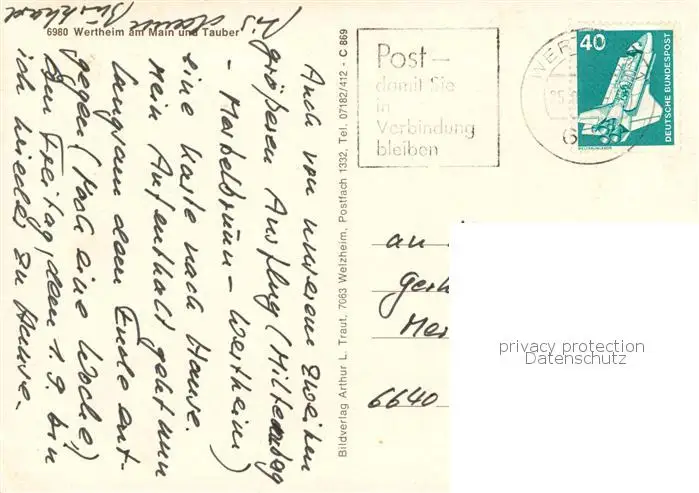 6980 Wertheim am Main und Tauber
Auch von unserem zweiten
größeren Ausflug (Miltenbg
- Mespelbrunn - Wertheim)
eine Karte nach Hause.
Mein Aufenthalt geht nun
langsam dem Ende ent-
gegen (Noch eine Woche)
Am Freitag, dem 1.9. bin
ich wieder zu Hause.
Bis dann Burkhard
Bildverlag Arthur L. Traut, 7063 Welzheim, Postfach 1332, Tel. 07182/412 - C 869
Post –
damit Sie
in
Verbindung
bleiben
WER
6
40
DEUTSCHE BUNDESPOST
an
Gerh
Mer
6640
privacy protection
Datenschutz